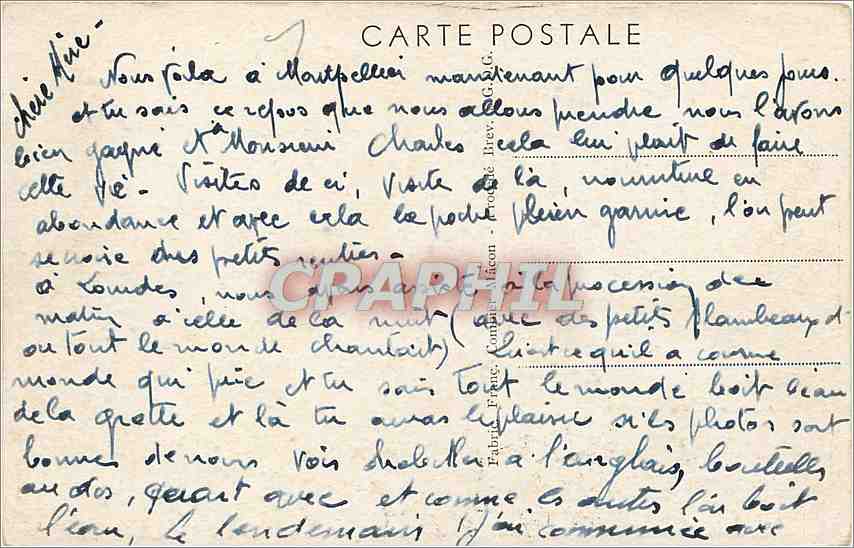 CARTE POSTALE
chère Mère -
Nous voilà à Montpellier maintenant pour quelques jours.
et tu sais ce repos que nous allons prendre nous l'avons
bien gagné et à Monsieur Charles cela lui plait de faire
cette vie - Visites de ci, visite de là, nourriture en
abondance et avec cela la poche bien garnie, l'on peut
se croire des petits rentiers -
à Lourdes, nous avons assisté à la procession de
matin à celle de la nuit (avec des petits flambeaux
ou tout le monde chantait)
monde qui prie et tu sais tout le monde boit l'eau
de la grotte et là tu auras le plaisir si les photos sont
bonnes de nous voir à l'anglais, bouteilles
au dos, quart avec et comme les autres l'on boit
l'eau, le lendemain j'ai communiée avec
Fabric. Franç. Combier Mâcon - Procédé Brev. S.G.D.G.
CPAPHIL